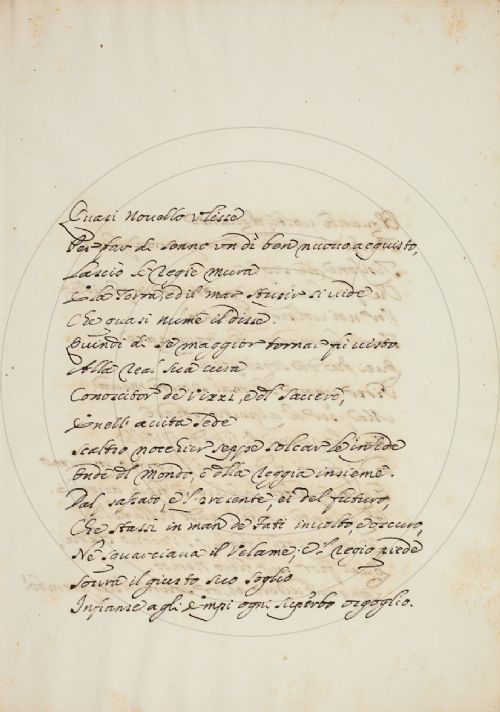 Quasi nouello vlisse
Per far di senno vn dì ben nuouo acquisto,
Lasciò le Regie mura
E la Terra, ed il mar stupir si vide
Che quasi nume il disse.
Quindi di se maggior tornar fu visto
Alla real sua cura
Conoscitor de Vizzi, e del sapere,
E nell auita sede
scaltro nocchier seppe solcar le infide
onde del Mondo, e della Reggia insieme.
Dal passato, e'l presente, ei del futuro,
Che stassi in man de fati inuolto, e oscuro,
Ne squarciaua il Velame; e'l regio piede
soura il giusto suo soglio
Infranse agli Empi ogni superbo orgoglio.